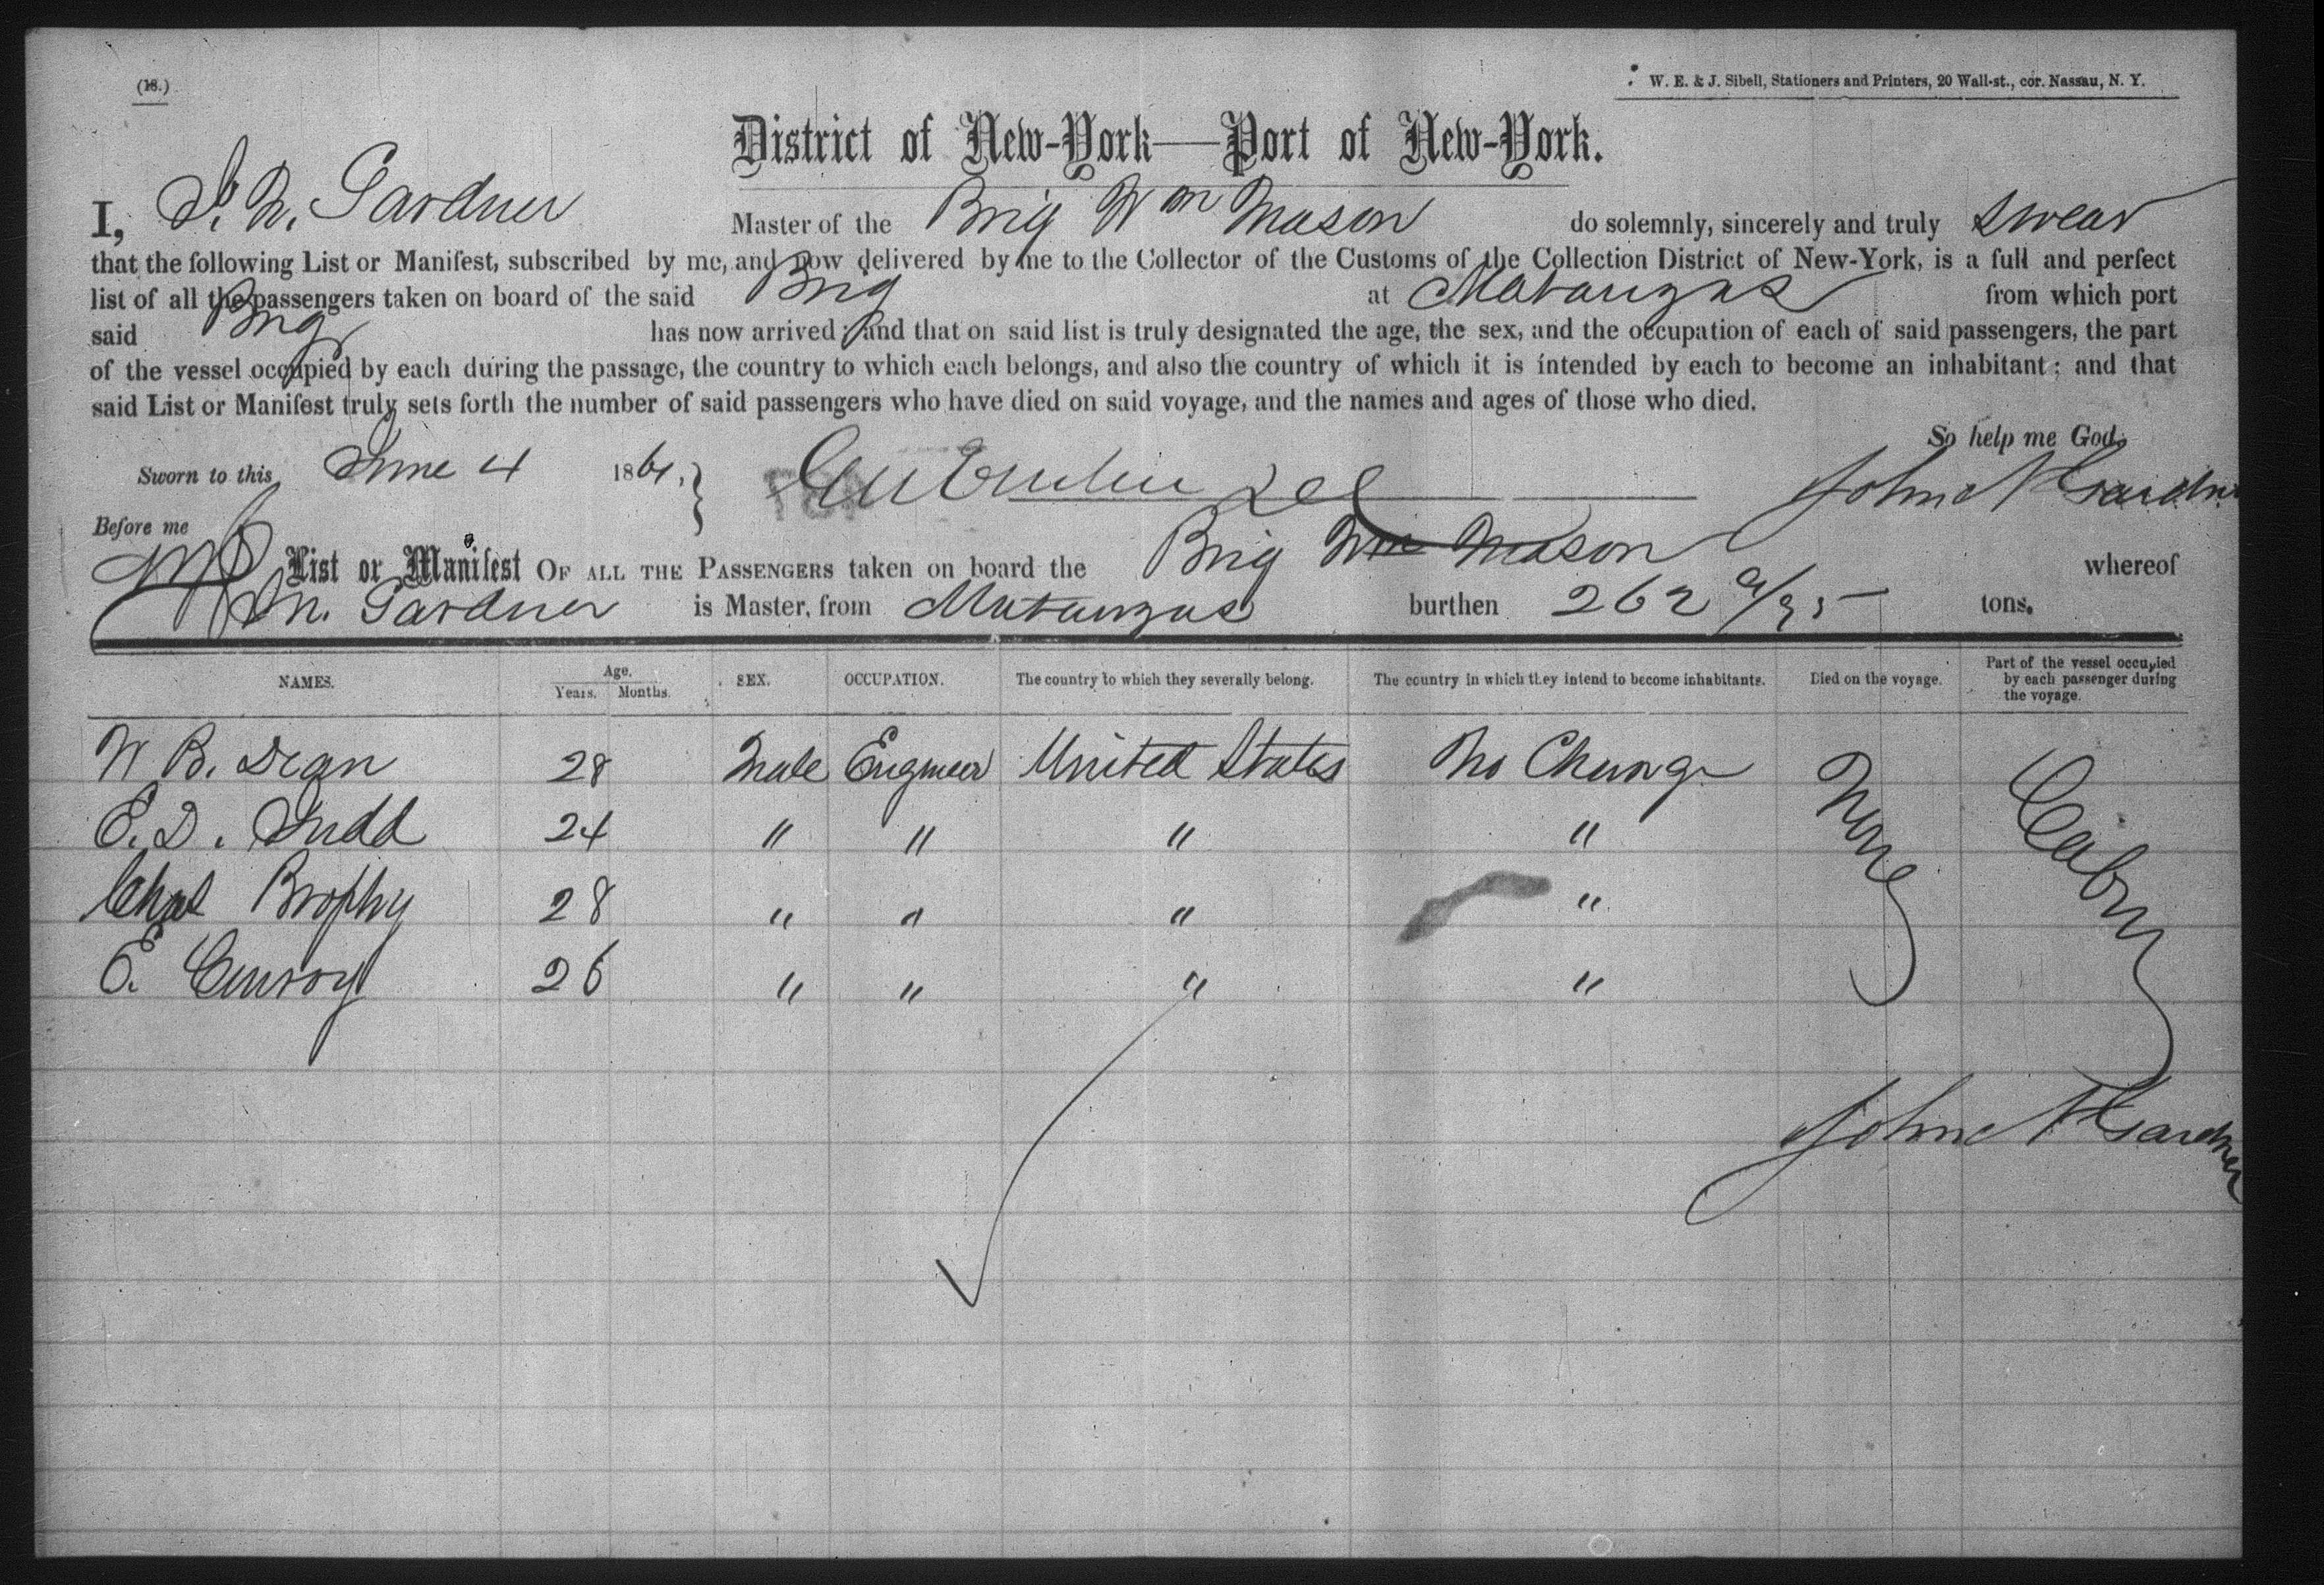 (18.)
W. E. & J. Sibell, Stationers and Printers, 20 Wall-st., cor. Nassau, N. Y.
District of New-York—Port of New-York.
I, J. N. Gardner Master of the Brig Wm Mason do solemnly, sincerely and truly swear
that the following List or Manifest, subscribed by me, and now delivered by me to the Collector of the Customs of the Collection District of New-York, is a full and perfect
list of all the passengers taken on board of the said Brig at Matanzas from which port
said Brig has now arrived; and that on said list is truly designated the age, the sex, and the occupation of each of said passengers, the part
of the vessel occupied by each during the passage, the country to which each belongs, and also the country of which it is intended by each to become an inhabitant; and that
said List or Manifest truly sets forth the number of said passengers who have died on said voyage, and the names and ages of those who died.
So help me God.
Sworn to this June 4 1861, } John N Gardner
Before me
List or Manifest OF ALL THE PASSENGERS taken on board the Brig Wm Mason whereof
J. N. Gardner is Master, from Matanzas burthen 262 9/95 tons.
NAMES. Age. Years. Months. SEX. OCCUPATION. The country to which they severally belong. The country in which they intend to become inhabitants. Died on the voyage. Part of the vessel occupied by each passenger during the voyage.
W B. Dean 28 Male Engineer United States No Change None Cabin
E. D. Judd 24 " " " "
Chas Brophy 28 " " " "
E. Conroy 26 " " " "
John N Gardner